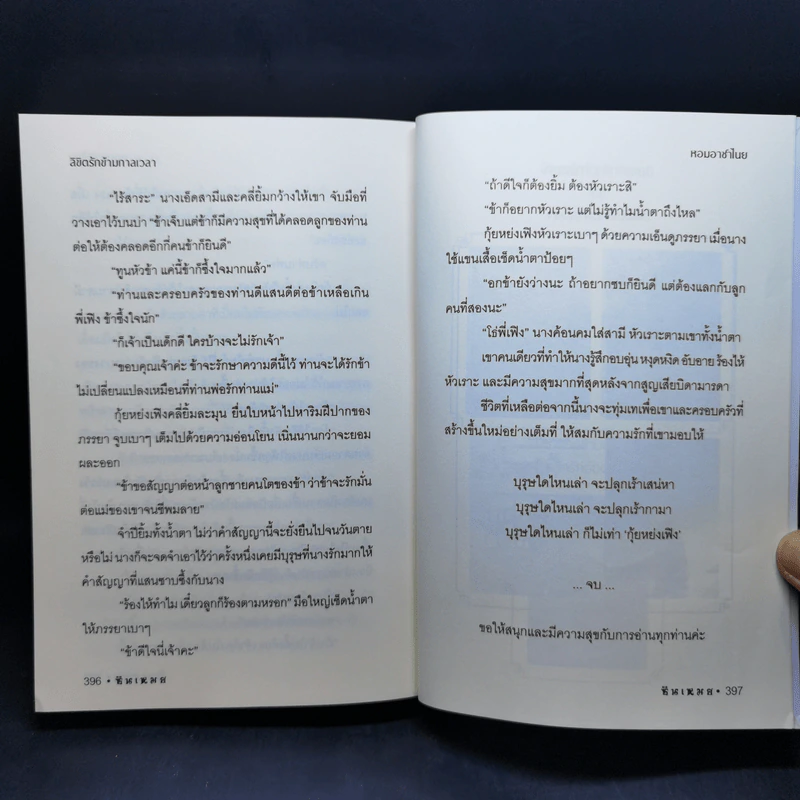 ลิขิตรักข้ามกาลเวลา
"ไร้สาระ" นางเอ็ดสามีและคลี่ยิ้มกว้างให้เขา จับมือที่
วางเอาไว้บนบ่า "ข้าเจ็บแต่ข้าก็มีความสุขที่ได้คลอดลูกของท่าน
ต่อให้ต้องคลอดอีกกี่คนข้าก็ยินดี"
"ทูนหัวข้า แค่นี้ข้าก็ซึ้งใจมากแล้ว"
"ท่านและครอบครัวของท่านดีแสนดีต่อข้าเหลือเกิน
พี่เฟิง ข้าซึ้งใจนัก"
"ก็เจ้าเป็นเด็กดี ใครบ้างจะไม่รักเจ้า"
"ขอบคุณเจ้าค่ะ ข้าจะรักษาความดีนี้ไว้ ท่านจะได้รักข้า
ไม่เปลี่ยนแปลงเหมือนที่ท่านพ่อรักท่านแม่"
กุ้ยหย่งเฟิงคลี่ยิ้มละมุน ยื่นใบหน้าไปหาริมฝีปากของ
ภรรยา จูบเบาๆ เต็มไปด้วยความอ่อนโยน เนิ่นนานกว่าจะยอม
ผละออก
"ข้าขอสัญญาต่อหน้าลูกชายคนโตของข้า ว่าข้าจะรักมั่น
ต่อแม่ของเขาจนชีพมลาย"
จำปียิ้มทั้งน้ำตา ไม่ว่าคำสัญญานี้จะยั่งยืนไปจนวันตาย
หรือไม่ นางก็จะจดจำเอาไว้ว่าครั้งหนึ่งเคยมีบุรุษที่นางรักมากให้
คำสัญญาที่แสนซาบซึ้งกับนาง
"ร้องไห้ทำไม เดี๋ยวลูกก็ร้องตามหรอก" มือใหญ่เช็ดน้ำตา
ให้ภรรยาเบาๆ
"ข้าดีใจนี่เจ้าคะ"
396 • ซินเหมย
หอมอาชาไนย
"ถ้าดีใจก็ต้องยิ้ม ต้องหัวเราะสิ"
"ข้าก็อยากหัวเราะ แต่ไม่รู้ทำไมน้ำตาถึงไหล"
กุ้ยหย่งเฟิงหัวเราะเบาๆ ด้วยความเอ็นดูภรรยา เมื่อนาง
ใช้แขนเสื้อเช็ดน้ำตาป้อยๆ
"อกข้ายังว่างนะ ถ้าอยากซบก็ยินดี แต่ต้องแลกกับลูก
คนที่สองนะ"
"โธ่พี่เฟิง" นางค้อนคมใส่สามี หัวเราะตามเขาทั้งน้ำตา
เขาคนเดียวที่ทำให้นางรู้สึกอบอุ่น หงุดหงิด อับอาย ร้องไห้
หัวเราะ และมีความสุขมากที่สุดหลังจากสูญเสียบิดามารดา
ชีวิตที่เหลือต่อจากนี้นางจะทุ่มเทเพื่อเขาและครอบครัวที่
สร้างขึ้นใหม่อย่างเต็มที่ ให้สมกับความรักที่เขามอบให้
บุรุษใดไหนเล่า จะปลุกเร้าเสน่หา
บุรุษใดไหนเล่า จะปลุกเร้ากามา
บุรุษใดไหนเล่า ก็ไม่เท่า 'กุ้ยหย่งเฟิง'
... จบ ...
ขอให้สนุกและมีความสุขกับการอ่านทุกท่านค่ะ
ซินเหมย • 397